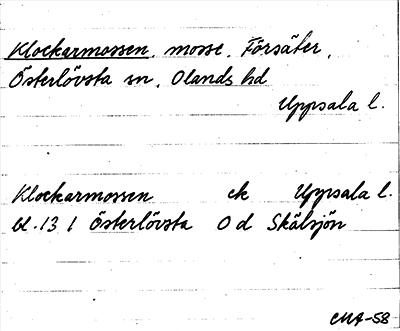 Klockarmossen, mosse, Försäter,
Österlövsta sn, Olands hd
Uppsala l.
Klockarmossen ek Uppsala l.
bl. 13 1 Österlövsta O d Skälsjön
CMA-58